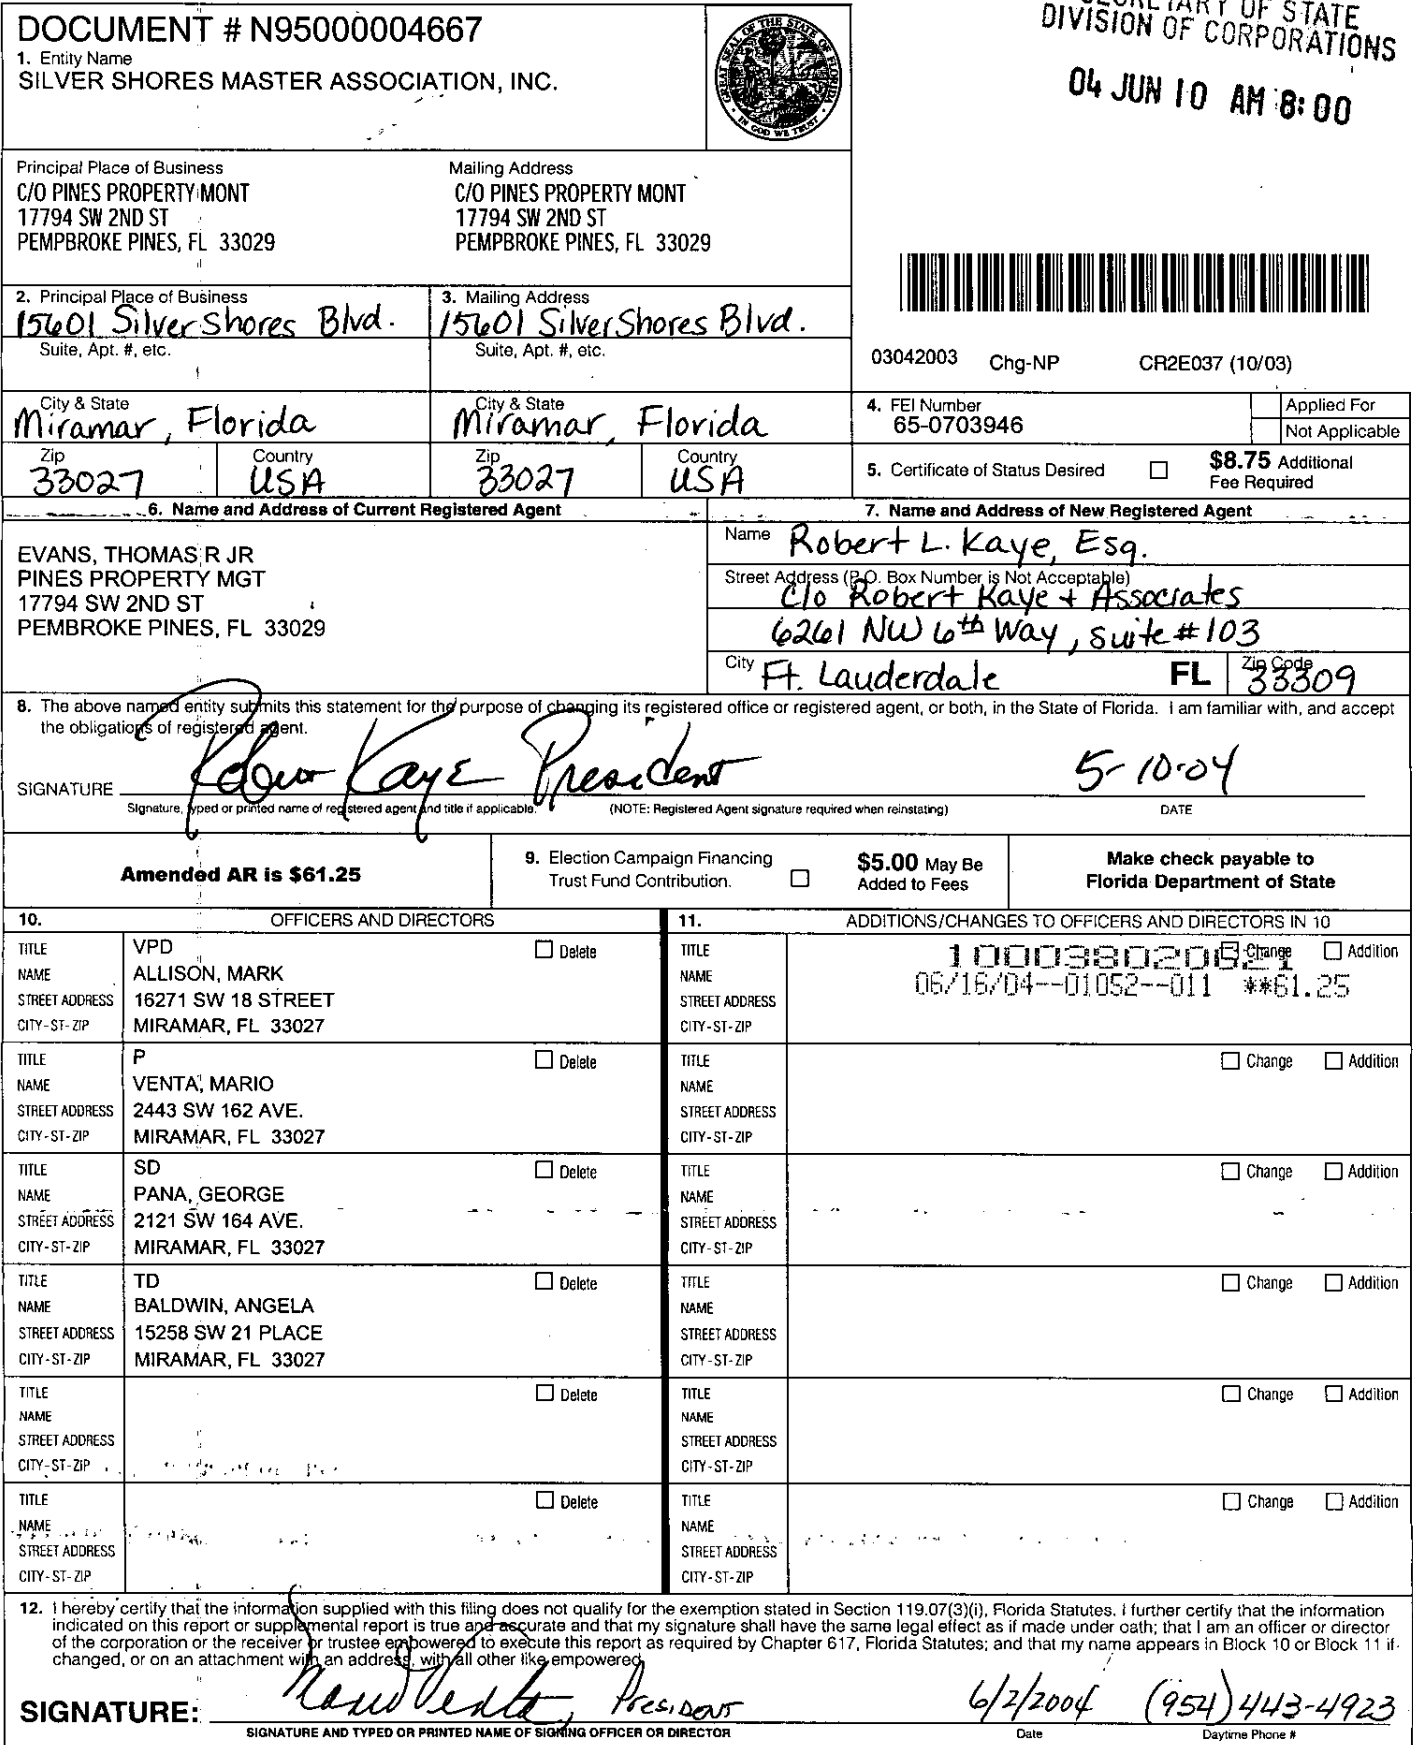 DOCUMENT # N95000004667
1. Entity Name
SILVER SHORES MASTER ASSOCIATION, INC.
GREAT SEAL OF THE STATE OF FLORIDA
IN GOD WE TRUST
OF STATE
DIVISION OF CORPORATIONS
04 JUN 10 AM 8:00
Principal Place of Business
C/O PINES PROPERTY MONT
17794 SW 2ND ST
PEMPBROKE PINES, FL 33029
Mailing Address
C/O PINES PROPERTY MONT
17794 SW 2ND ST
PEMPBROKE PINES, FL 33029
2. Principal Place of Business
15601 Silver Shores Blvd.
Suite, Apt. #, etc.
City & State
Miramar, Florida
Zip
33027
Country
USA
3. Mailing Address
15601 Silver Shores Blvd.
Suite, Apt. #, etc.
City & State
Miramar, Florida
Zip
33027
Country
USA
03042003 Chg-NP CR2E037 (10/03)
4. FEI Number
65-0703946
Applied For
Not Applicable
5. Certificate of Status Desired
$8.75 Additional
Fee Required
6. Name and Address of Current Registered Agent
EVANS, THOMAS R JR
PINES PROPERTY MGT
17794 SW 2ND ST
PEMBROKE PINES, FL 33029
7. Name and Address of New Registered Agent
Name Robert L. Kaye, Esq.
Street Address (P.O. Box Number is Not Acceptable)
C/o Robert Kaye + Associates
6261 NW 6th Way, suite #103
City Ft. Lauderdale FL Zip Code 33309
8. The above named entity submits this statement for the purpose of changing its registered office or registered agent, or both, in the State of Florida. I am familiar with, and accept
the obligations of registered agent.
SIGNATURE Robert Kaye President 5-10-04
Signature, typed or printed name of registered agent and title if applicable. (NOTE: Registered Agent signature required when reinstating) DATE
Amended AR is $61.25
9. Election Campaign Financing
Trust Fund Contribution.
$5.00 May Be
Added to Fees
Make check payable to
Florida Department of State
10. OFFICERS AND DIRECTORS
TITLE VPD Delete
NAME ALLISON, MARK
STREET ADDRESS 16271 SW 18 STREET
CITY-ST-ZIP MIRAMAR, FL 33027
TITLE P Delete
NAME VENTA, MARIO
STREET ADDRESS 2443 SW 162 AVE.
CITY-ST-ZIP MIRAMAR, FL 33027
TITLE SD Delete
NAME PANA, GEORGE
STREET ADDRESS 2121 SW 164 AVE.
CITY-ST-ZIP MIRAMAR, FL 33027
TITLE TD Delete
NAME BALDWIN, ANGELA
STREET ADDRESS 15258 SW 21 PLACE
CITY-ST-ZIP MIRAMAR, FL 33027
TITLE Delete
NAME
STREET ADDRESS
CITY-ST-ZIP
TITLE Delete
NAME
STREET ADDRESS
CITY-ST-ZIP
11. ADDITIONS/CHANGES TO OFFICERS AND DIRECTORS IN 10
TITLE Change Addition
NAME 06/16/04--01052--011 **61.25
STREET ADDRESS
CITY-ST-ZIP
TITLE Change Addition
NAME
STREET ADDRESS
CITY-ST-ZIP
TITLE Change Addition
NAME
STREET ADDRESS
CITY-ST-ZIP
TITLE Change Addition
NAME
STREET ADDRESS
CITY-ST-ZIP
TITLE Change Addition
NAME
STREET ADDRESS
CITY-ST-ZIP
TITLE Change Addition
NAME
STREET ADDRESS
CITY-ST-ZIP
12. I hereby certify that the information supplied with this filing does not qualify for the exemption stated in Section 119.07(3)(i), Florida Statutes. I further certify that the information
indicated on this report or supplemental report is true and accurate and that my signature shall have the same legal effect as if made under oath; that I am an officer or director
of the corporation or the receiver or trustee empowered to execute this report as required by Chapter 617, Florida Statutes; and that my name appears in Block 10 or Block 11 if
changed, or on an attachment with an address, with all other like empowered.
SIGNATURE: Mario Venta, President 6/2/2004 (954)443-4923
SIGNATURE AND TYPED OR PRINTED NAME OF SIGNING OFFICER OR DIRECTOR Date Daytime Phone #